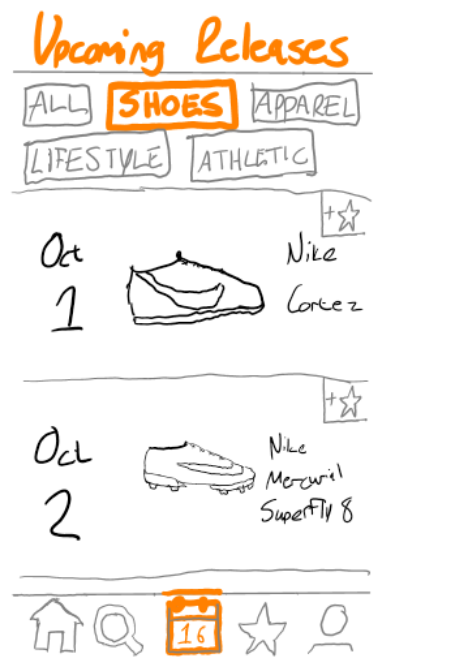 Upcoming Releases
ALL SHOES APPAREL
LIFESTYLE ATHLETIC
+
Oct
1
Nike
Cortez
+
Oct
2
Nike
Mercurial
Superfly 8
16